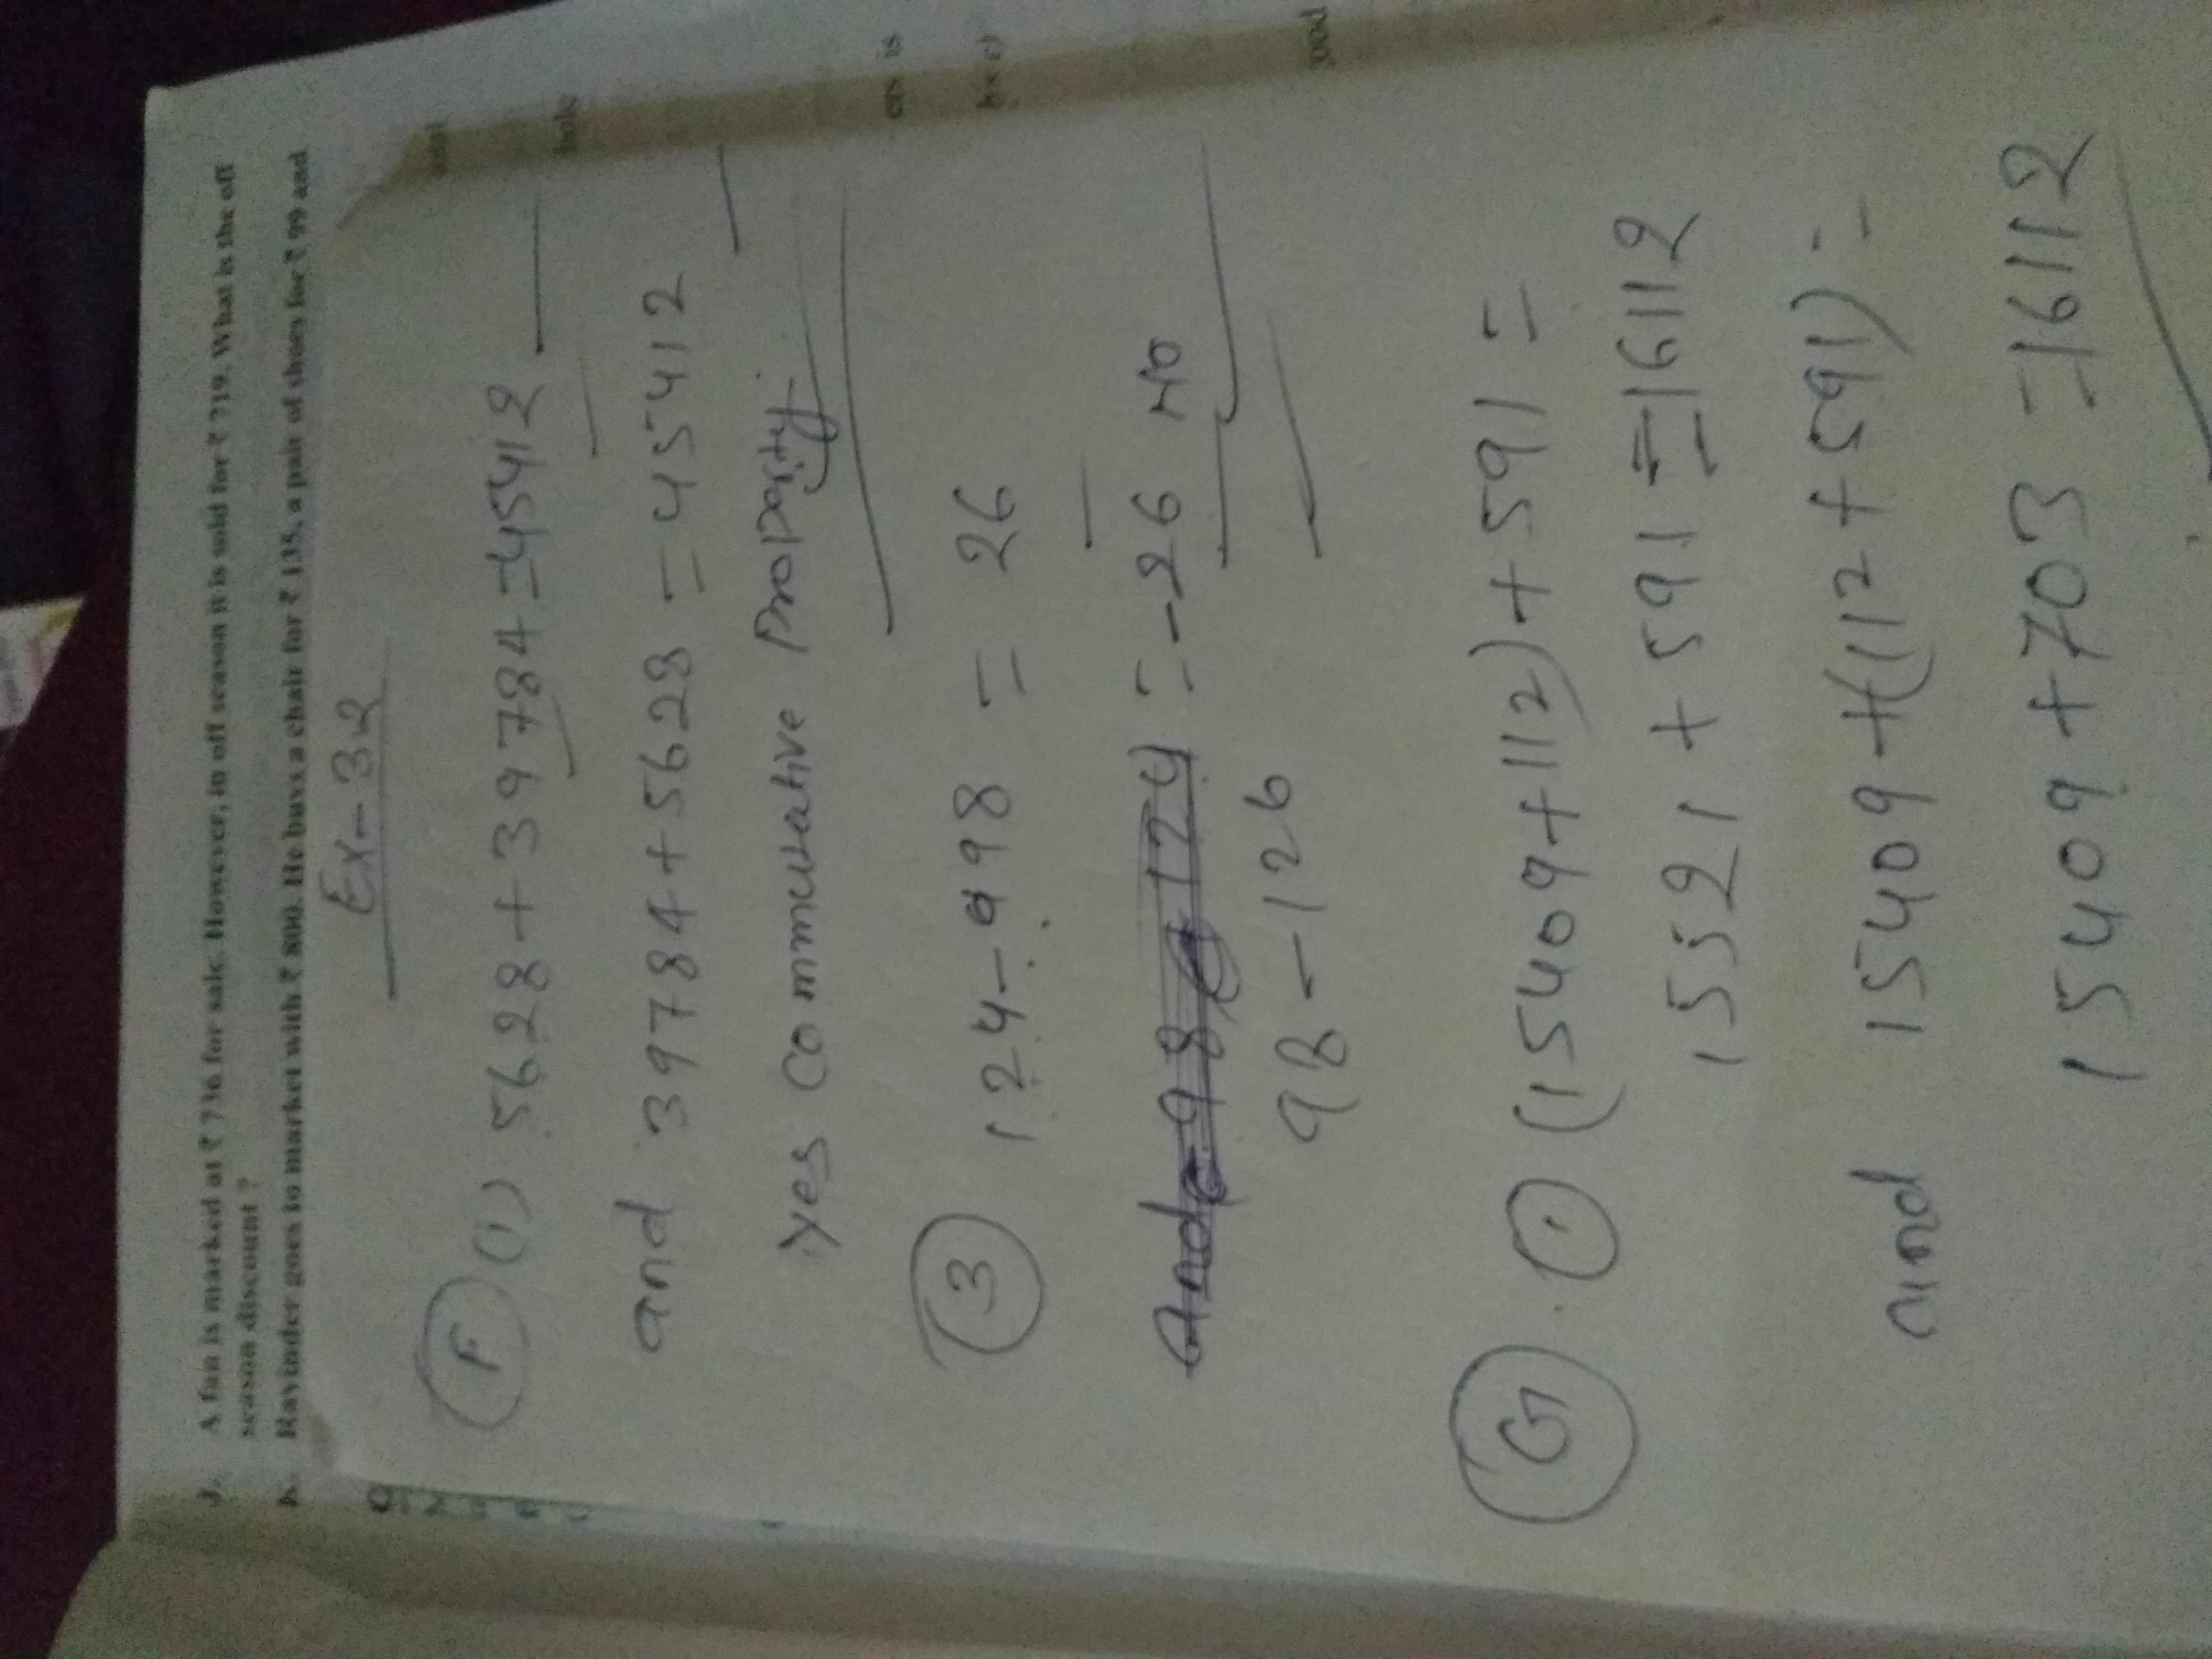 J. A fan is marked at ₹ 736 for sale. However, in off season it is sold for ₹ 719. What is the off
season discount ?
K. Ravinder goes to market with ₹ 800. He buys a chair for ₹ 135, a pair of shoes for ₹ 99 and
Ex-32
F (1) 5628+39784=45412
and 39784+5628 = 45412
yes commutative Proparity
3 124-98 = 26
And 98 124 = -26 No
98-126
G. 1 (15409+112)+591 =
15521+591 = 16112
and 15409+(112+591) =
15409+703 = 16112
ers is
good